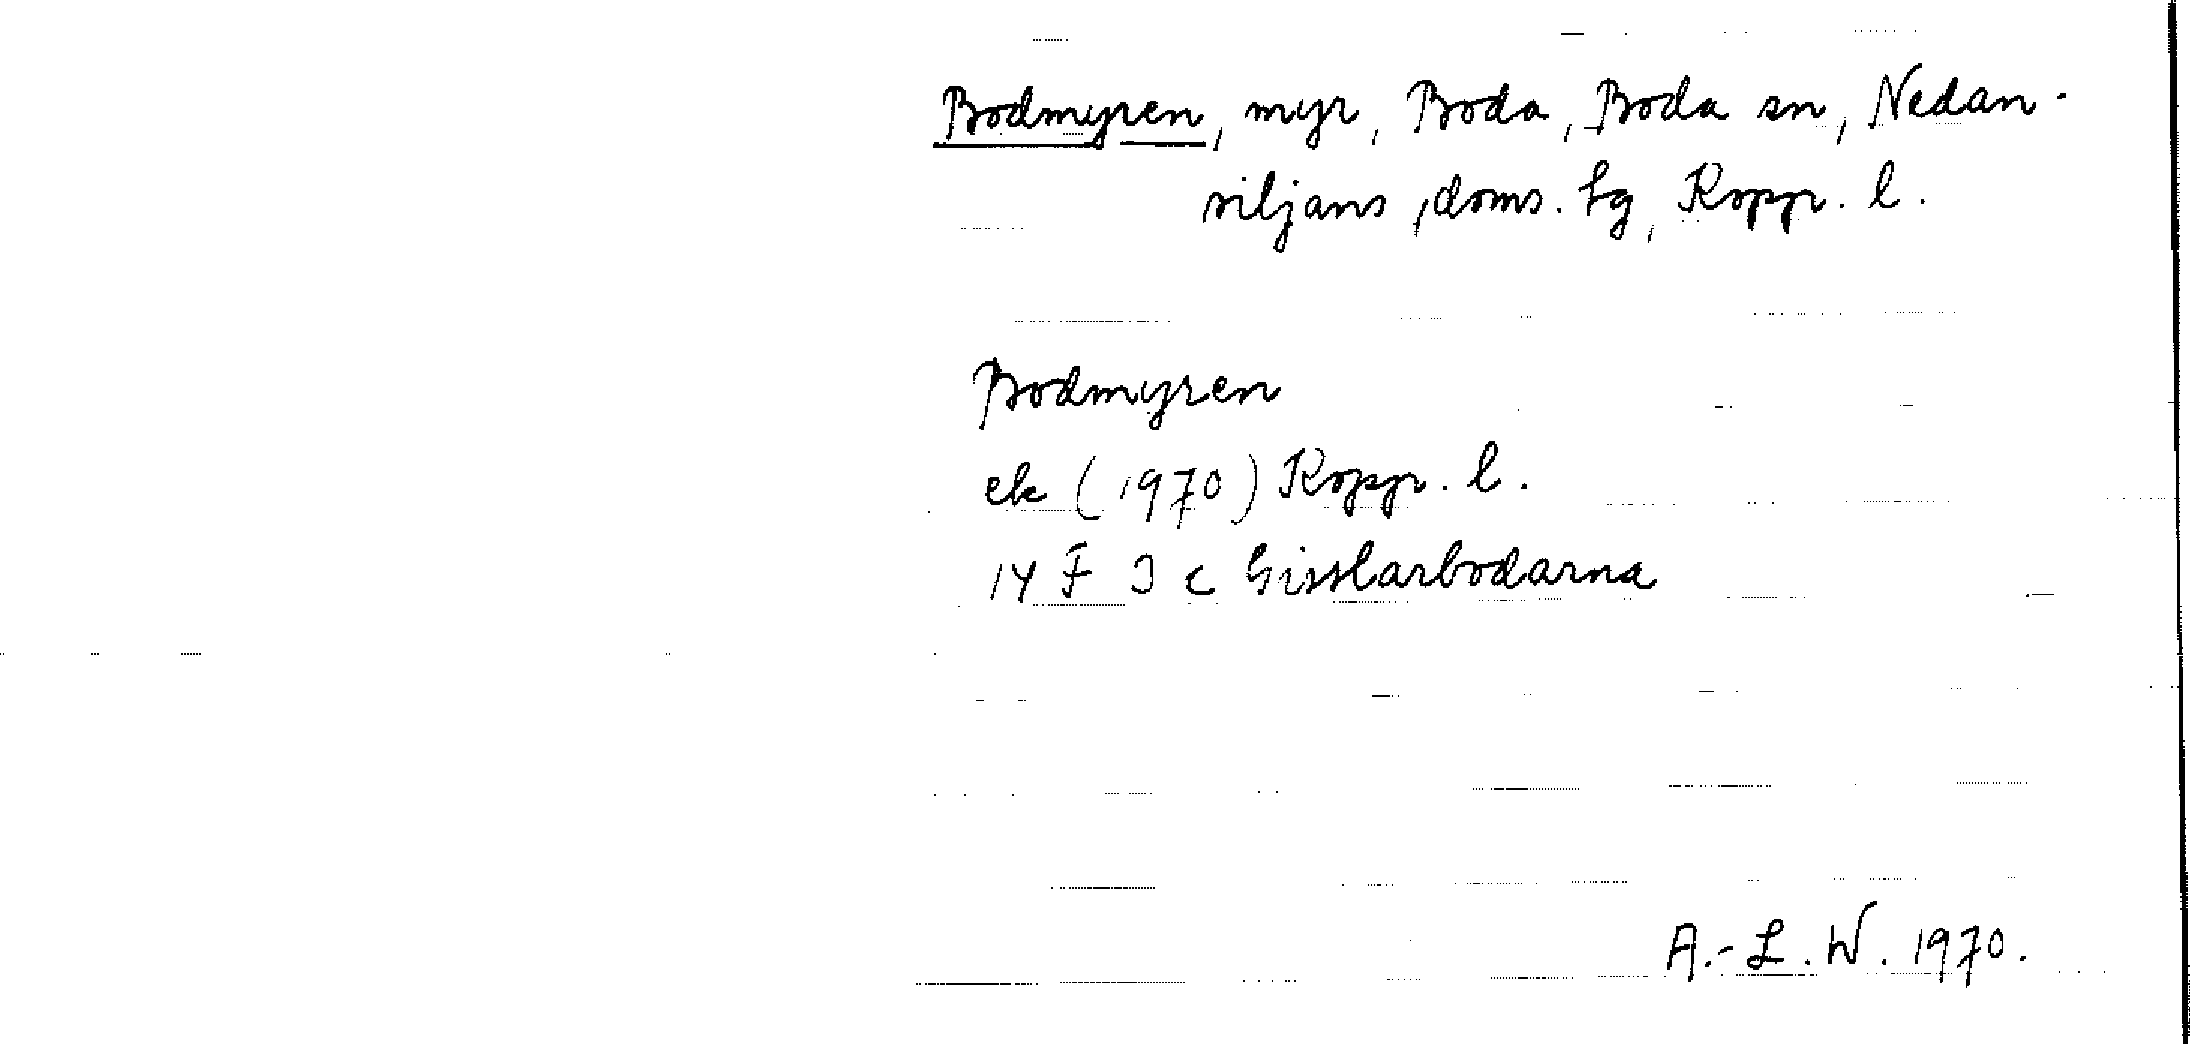 Bodmyren, myr, Boda, Boda sn, Nedan-
siljans, doms. hg, Kopp. l.
Bodmyren
ek (1970) Kopp. l.
14 F 3 c Gisslarbodarna
A.-L. W. 1970.